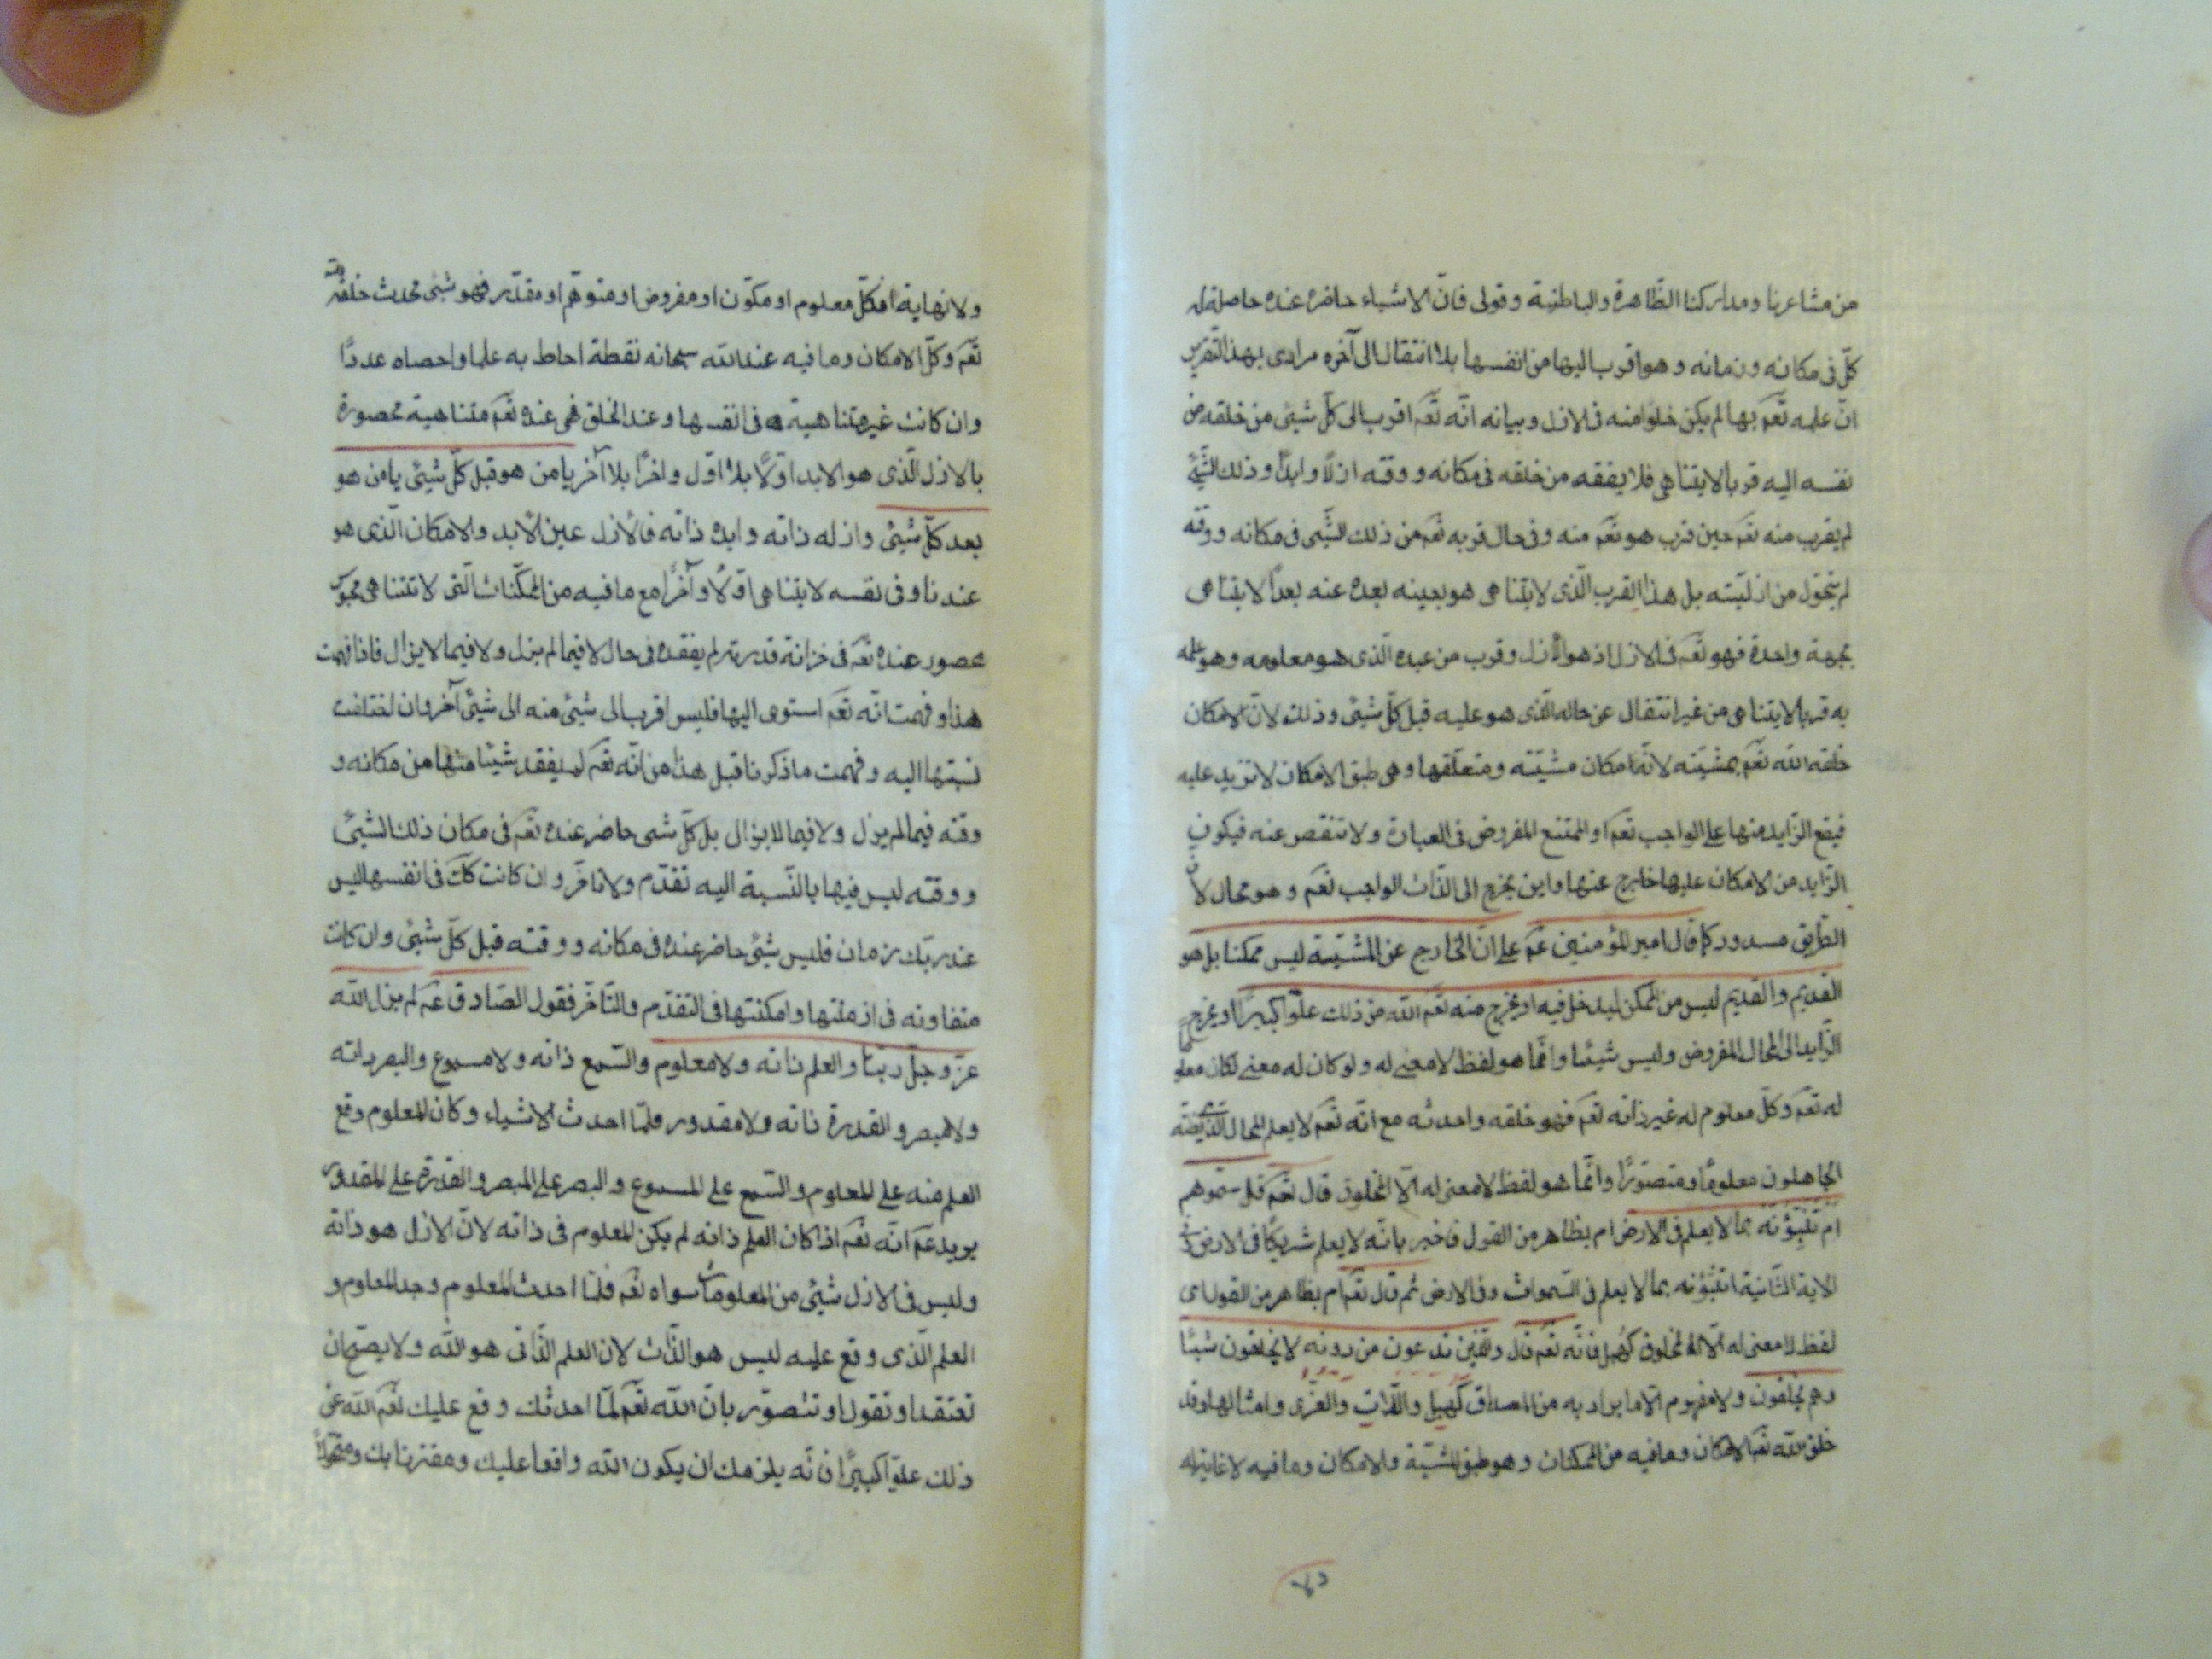 من مشاعرنا ومداركنا الظّاهرة والباطنية وقولى فانّ الاشياء حاضرة عنده حاصلة له
كلّ فى مكانه وزمانه وهو اقرب اليها من انفسها بلا انتقال الى آخره مرادى بهذا التقرير
انّ علمه تعٓم بها لم يكن خلوا منه فى الازل وبيانه انّه تعٓم اقرب الى كلّ شيئ من خلقه من
نفسه اليه قربا لا يتناهى فلا يفقده من خلقه فى مكانه ووقته ازلاً وابداً وذلك الشّيئ
لم يقرب منه تعٓم حين قرب هو تعٓم منه وفى حال قربه تعٓم من ذلك الشّيى فى مكانه ووقته
لم يتحوّل من ازليّته بل هذا القرب الّذى لا يتناهى هو بعينه بعده عنه بعداً لا يتناهى
بجهة واحدة فهو تعٓم فى الازل اذ هو الأزل وقرب من عبده الّذى هو معلومه وهو علمه
به قربا لا يتناهى من غير انتقال عن حاله الّذى هو عليه قبل كلّ شيئ وذلك لانّ الامكان
خلقه الله تعٓم بمشيّته لانّه امكان مشيّته ومتعلّقها وهى طبق الامكان لا تزيد عليه
فيقع الزّايد منها على الواجب تعٓم او الممتنع المفروض فى العبارة ولا تنقص عنه فيكون
الزّايد من الامكان عليها خارج عنها واين يخرج الى الذّات الواجب تعٓم وهو محال لانّ
الطّريق مسدود كما قال امير المؤمنين عٓم على انّ الخارج عن المشيّة ليس ممكنا بل هو
القديم والقديم ليس من الممكن ليدخل فيه او يخرج منه تعٓم الله من ذلك علوّا كبيرًا او يخرج
الزّايد الى المحال المفروض وليس شيئا وانّما هو لفظ لا معنى له ولو كان له معنى لكان معلوما
له تعٓم وكلّ معلوم له غير ذاته تعٓم فهو خلقه واحدثه مع انّه تعٓم لا يعلم المحال الذى يظنّه
الجاهلون معلومًا ومتصوّرًا وانّما هو لفظ لا معنى له الّا المخلوق قال تعٓم قل سمّوهم
ام تنبّؤنه بما لا يعلم فى الارض ام بظاهر من القول فاخبر بانّه لا يعلم شريكًا فى الارض وفى
الاية الثّانية اتنبّؤنه بما لا يعلم فى السّموات وفى الارض ثم قال تعٓم ام بظاهر من القول اى
لفظ لا معنى له الّا المخلوق كهُبل فانّه تعٓم قال والّذين تدعون من دونه لا يخلقون شيئا
وهم يخلقون ولا مفهوم الّا ما يراد به من المصداق كهبل واللّات والعزّى وامثالها وقد
خلق الله تعٓم الامكان وما فيه من الممكنات وهو طبق المشيّة والامكان وما فيه لا غاية له
ولا نهاية فكلّ معلوم او مكوّن او مفروض او متوهّم او مقدّر فهو شيئ محدث خلقه الله
تعٓم وكلّ الامكان وما فيه عند الله سبحانه نقطة احاط به علما واحصاه عددًا
وان كانت غير متناهية فى انفسها وعند الخلق فهى عنده تعٓم متناهية محصورة
بالازل الّذى هو الابد اوّلًا بلا اوّل واخرًا بلا آخر يا من هو قبل كلّ شيئ يا من هو
بعد كلّ شيئ وازله ذاته وابده ذاته فالأزل عين الأبد والامكان الّذى هو
عندنا وفى نفسه لا يتناهى اوّلًا وآخرًا مع ما فيه من الممكنات الّتى لا تتناهى محبوس
محصور عنده تعٓم فى خزانة قدرته لم يفقده فى حال لا فيما لم يزل ولا فيما لا يزال فاذا فهمت
هذا وفهمت انّه تعٓم استوى اليها فليس اقرب الى شيئ منه الى شيئ آخر وان اختلفت
نسبتها اليه وفهمت ما ذكرنا قبل هذا من انّه تعٓم لم يفقد شيئا منها من مكانه و
وقته فيما لم يزل ولا فيما لا يزال بل كلّ شى حاضر عنده تعٓم فى مكان ذلك الشّيئ
ووقته ليس فيها بالنّسبة اليه تقدّم ولا تاخّر وان كانت كك فى انفسها ليس
عند ربّك زمان فليس شيئ حاضر عنده فى مكانه ووقته قبل كلّ شيئ وان كانت
متفاوته فى ازمنتها وامكنتها فى التقدّم والتّاخّر فقول الصّادق عٓم لم يزل الله
عزّ وجلّ ربّنا والعلم ذاته ولا معلوم والسّمع ذاته ولا مسموع والبصر ذاته
ولا مبصر والقدرة ذاته ولا مقدور فلمّا احدث الاشياء وكان المعلوم وقع
العلم منه على المعلوم والسّمع على المسموع والبصر على المبصر والقدرة على المقدور
يريد عٓم انّه تعٓم اذا كان العلم ذاته لم يكن المعلوم فى ذاته لانّ الازل هو ذاته
وليس فى الازل شيئ من المعلومات سواه تعٓم فلمّا احدث المعلوم وجد المعلوم و
العلم الّذى وقع عليه ليس هو الذّات لان العلم الذّاتى هو الله ولا يصحّ ان
تعتقد او تقول او تتصوّر بانّ الله تعٓم لمّا احدثك وقع عليك تعٓم الله عن
ذلك علوّا كبيرًا فانّه يلزمك ان يكون الله واقعا عليك ومقترنا بك ومتحوّلًا